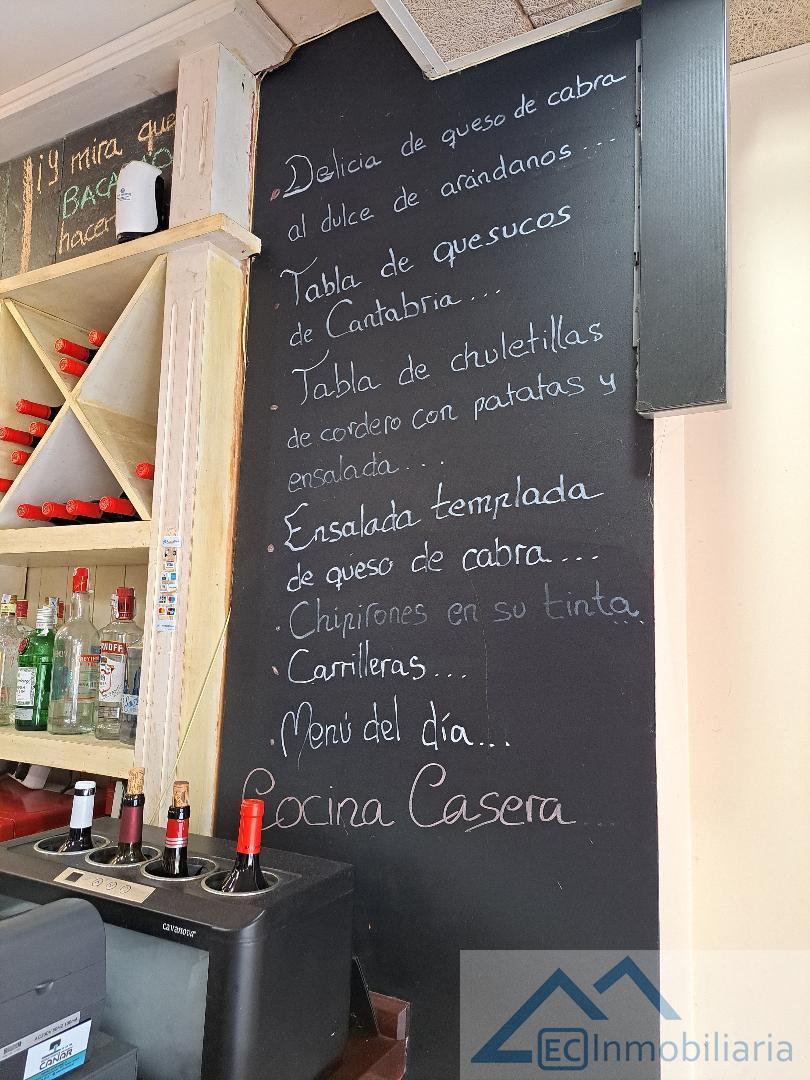 ¡¡y mira que
hacer
. Delicia de queso de cabra
al dulce de arándanos ...
. Tabla de quesucos
de Cantabria ...
. Tabla de chuletillas
de cordero con patatas y
ensalada ...
. Ensalada templada
de queso de cabra ...
. Chipirones en su tinta
. Carrilleras ...
. Menú del día ...
Cocina Casera
cavanova
CANAR
EC Inmobiliaria